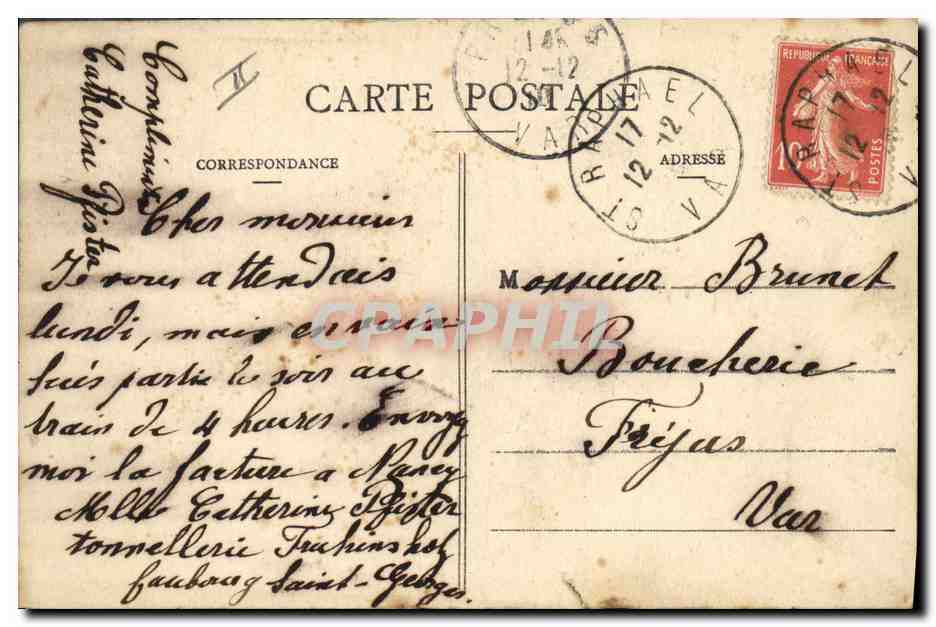 CARTE POSTALE
CORRESPONDANCE
ADRESSE
Compliments
Catherine Pfister
Cher monsieur
Je vous attendais
lundi, mais en vain
suis partie le soir au
train de 4 heures. Envoyez
moi la facture a Nancy
Mlle Catherine Pfister
tonnellerie Fruhinsholz
faubourg Saint-Georges.
Monsieur Brunet
Boucherie
Fréjus
Var
ST RAPHAEL
17
12 -12
VAR
12 -12
VAR
REPUBLIQUE FRANÇAISE
10c
POSTES
ST RAPHAEL
17
12 12
V
II
CPAPHIL